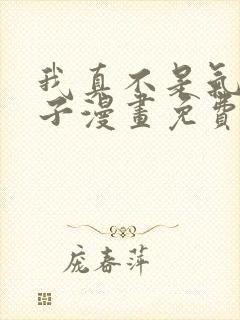 我真不是氣
子漫畫免費
庞春萍